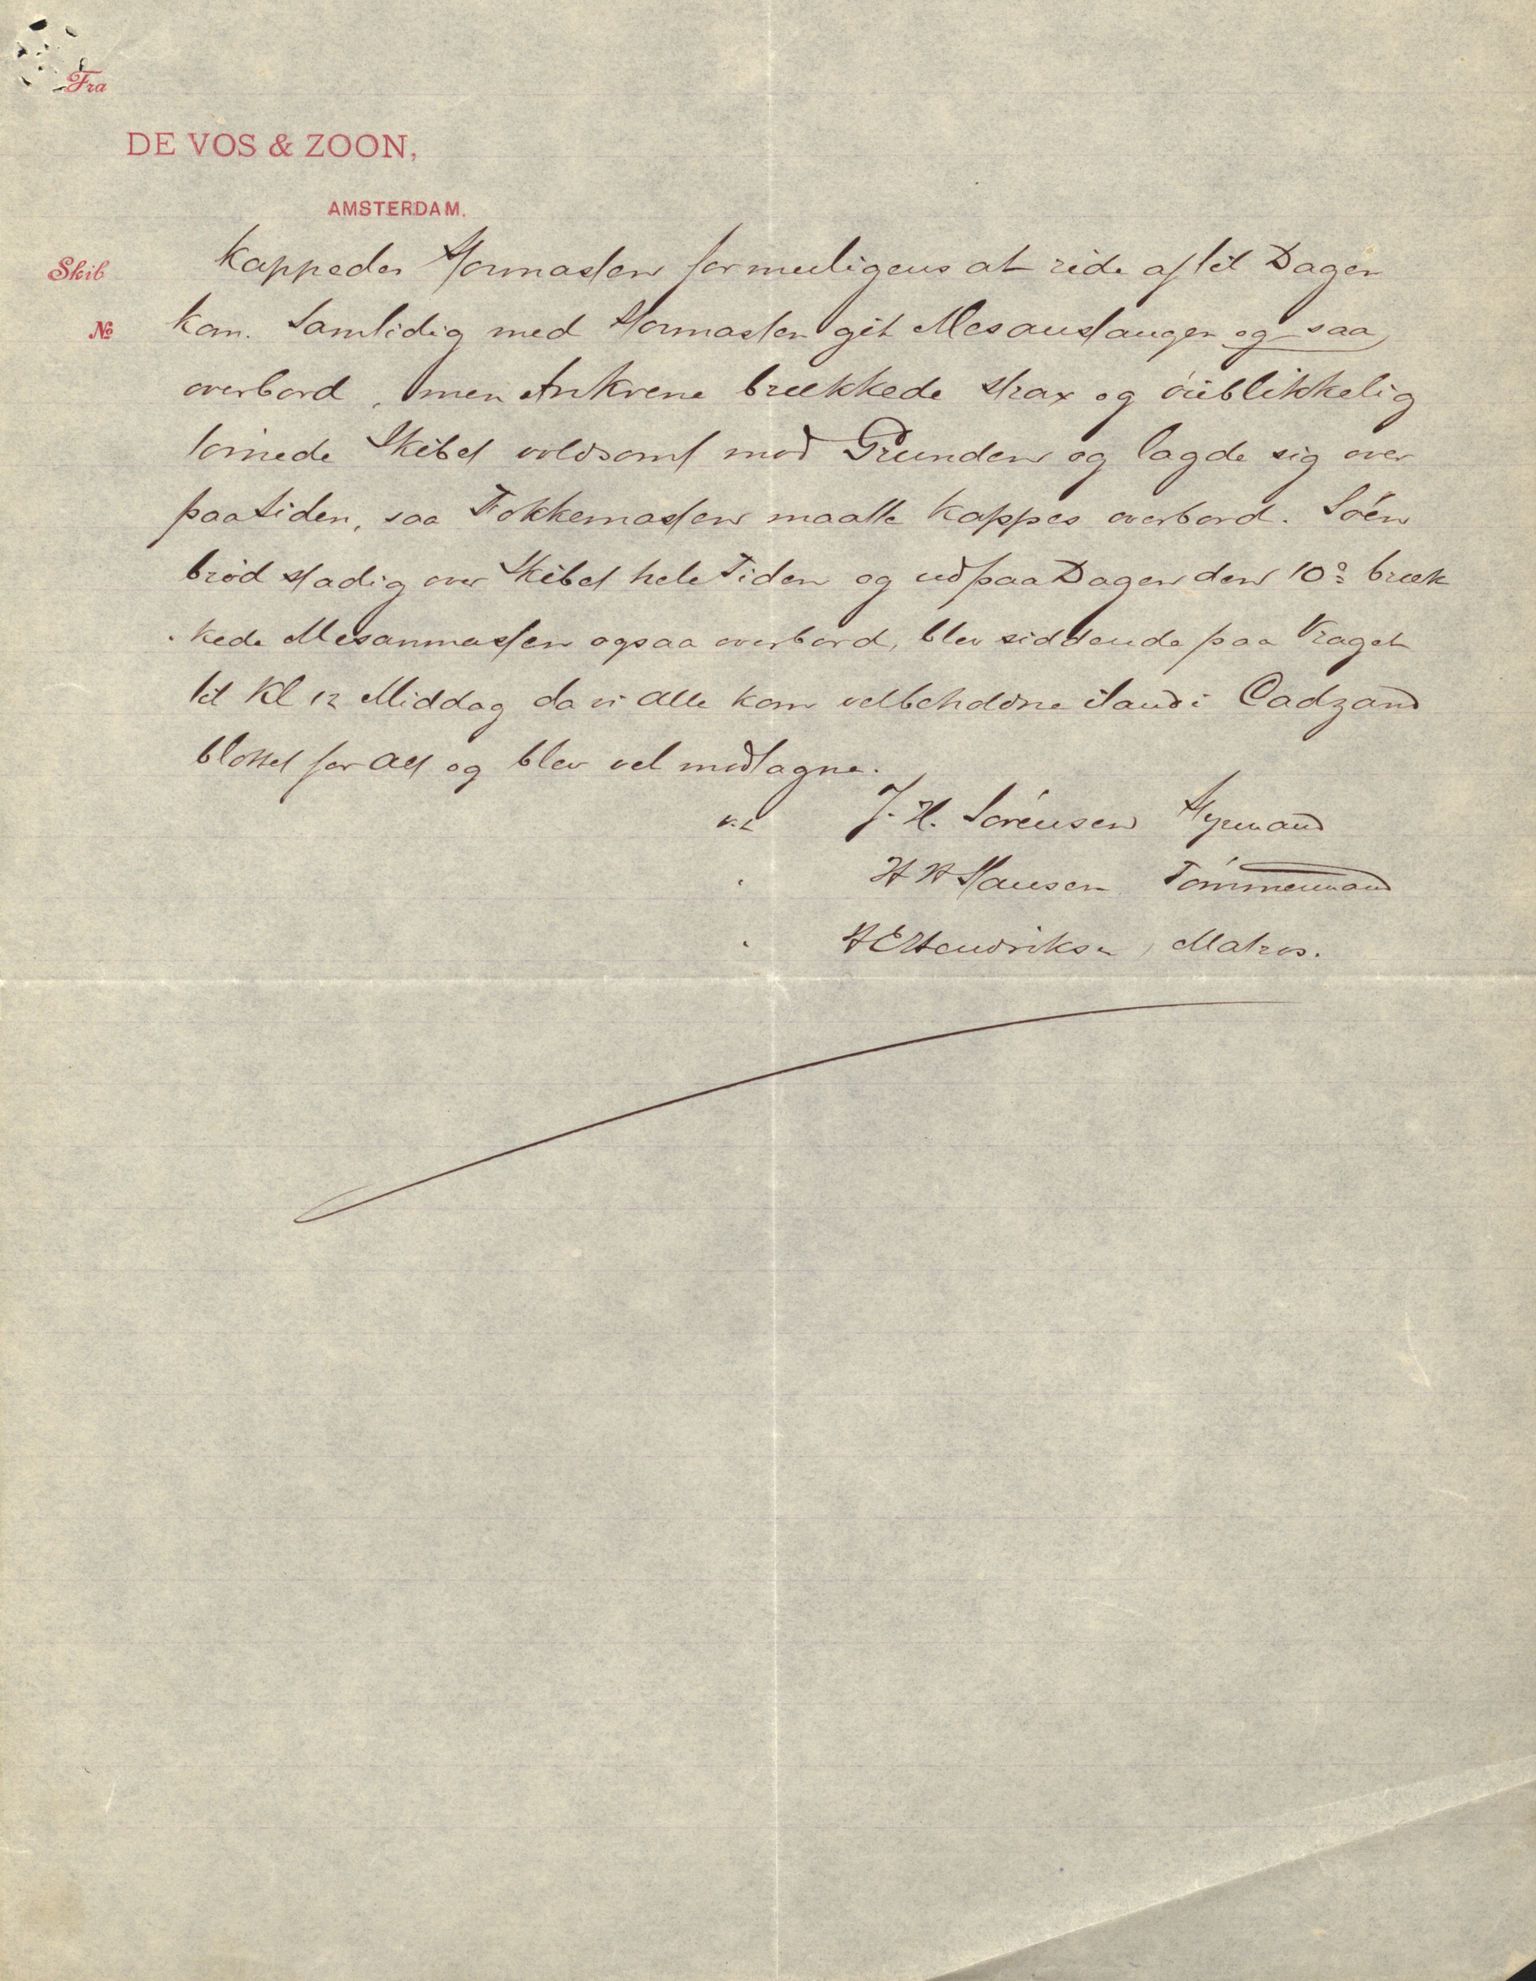 Fra
DE VOS & ZOON,
AMSTERDAM.
Skib
No
kappedes Stormasten for muligens at ride af til Dagen
kom. Samtidig med Stormasten gik Mesanstangen og saa
overbord, men Ankrene brækkede strax og öieblikkelig
tornede Skibet voldsomt mod Grunden og lagde sig over
paa Siden, saa Fokkemasten maatte kappes overbord. Söen
bröd stadig over Skibet hele Tiden og ud paa Dagen den 10de bræk
kede Mesanmasten ogsaa overbord, blev siddende paa Vraget
til Kl 12 Middag da vi alle kom velbeholdne iland i Cadzand
blottet for Alt og blev vel modtagne.
J. H. Sörensen Styrmand
H H Hansen Tömmermand
H E Hendriksen, Matros.